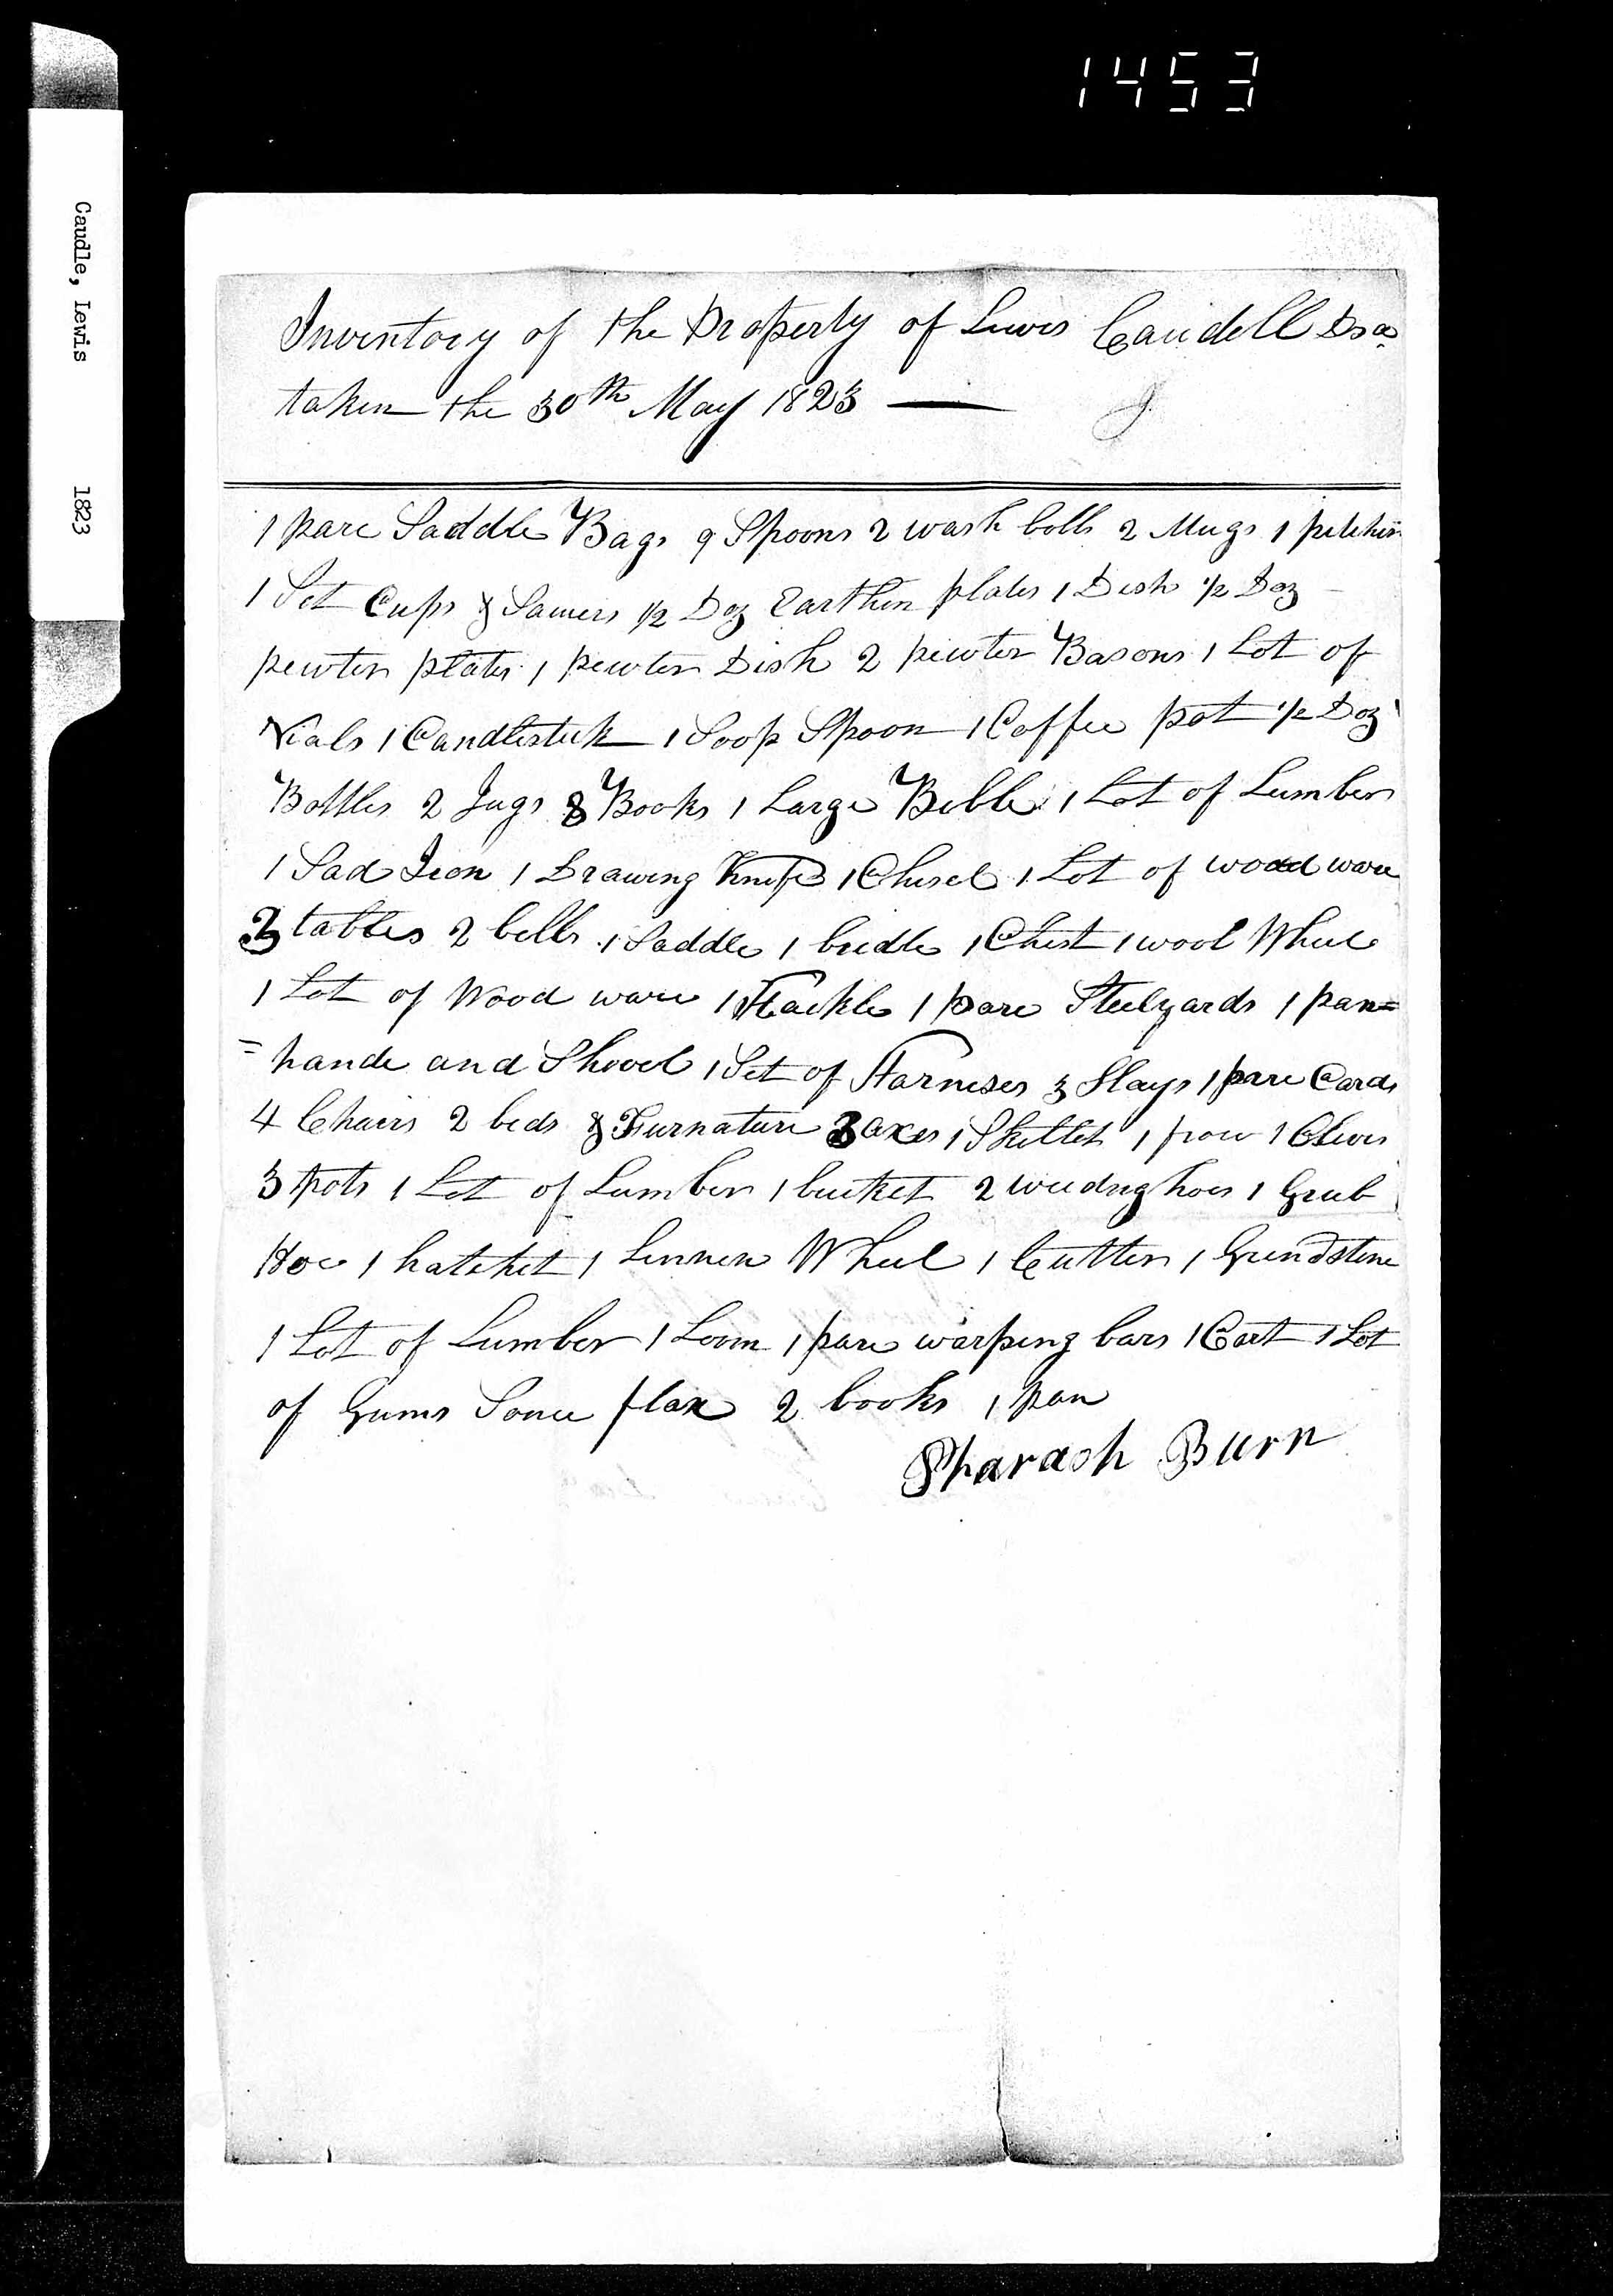 1453
Caudle, Lewis 1823
Inventory of the Property of Lewis Caudell Dsd
taken the 30th May 1823 —
1 pare Saddle Bags 9 Spoons 2 wash bolls 2 Mugs 1 pitcher
1 Set Cups & Sausers 1/2 Doz Earthen plates 1 Dish 1/2 Doz
pewter plates 1 pewter Dish 2 pewter Basons 1 Lot of
Vials 1 Candlestick 1 Soop Spoon 1 Coffee pot 1/2 Doz
Bottles 2 Jugs 8 Books 1 Large Bible 1 Lot of Lumber
1 Sad Iron 1 Drawing Knife 1 Chisel 1 Lot of wood ware
3 tables 2 bells 1 Saddle 1 bridle 1 Chest 1 wool Wheel
1 Lot of Wood ware 1 Hackle 1 pare Steelyards 1 pan=
=hande and Shovel 1 Set of Harneses 3 Slays 1 pare Cards
4 Chairs 2 beds & Furnature 3 axes 1 Skillet 1 frow 1 Clevis
3 pots 1 Lot of Lumber 1 bucket 2 weeding hoes 1 Grub
Hoe 1 hatchet 1 Linnen Wheel 1 Cutter 1 Grindstone
1 Lot of Lumber 1 Loom 1 pare warping bars 1 Cart 1 Lot
of Gums Some flax 2 books 1 pan
Pharaoh Burn